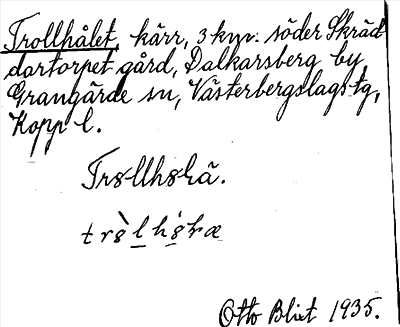 Trollhålet, kärr, 3 km. söder Skräd
dartorpet gård, Dalkarsberg by,
Grangärde sn, Västerbergslags tg,
Kopp l.
Otto Blixt 1935.